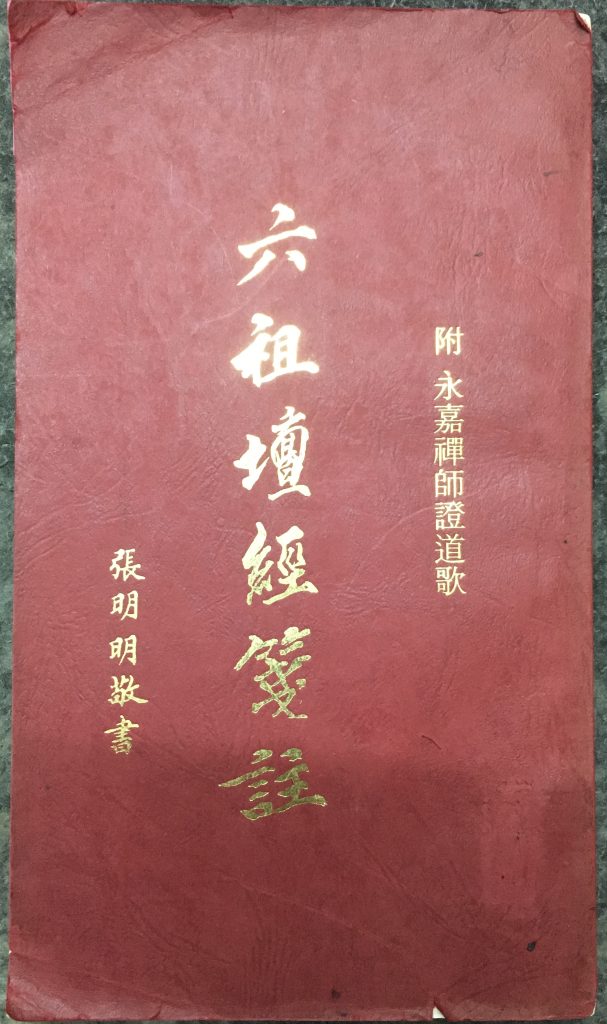 附 永嘉禪師證道歌
六祖壇經箋註
張明明敬書